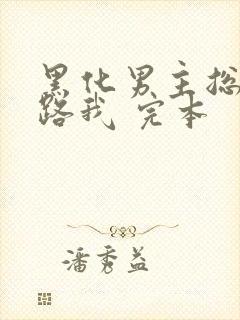 黑化男主总
路我 完本
潘秀益